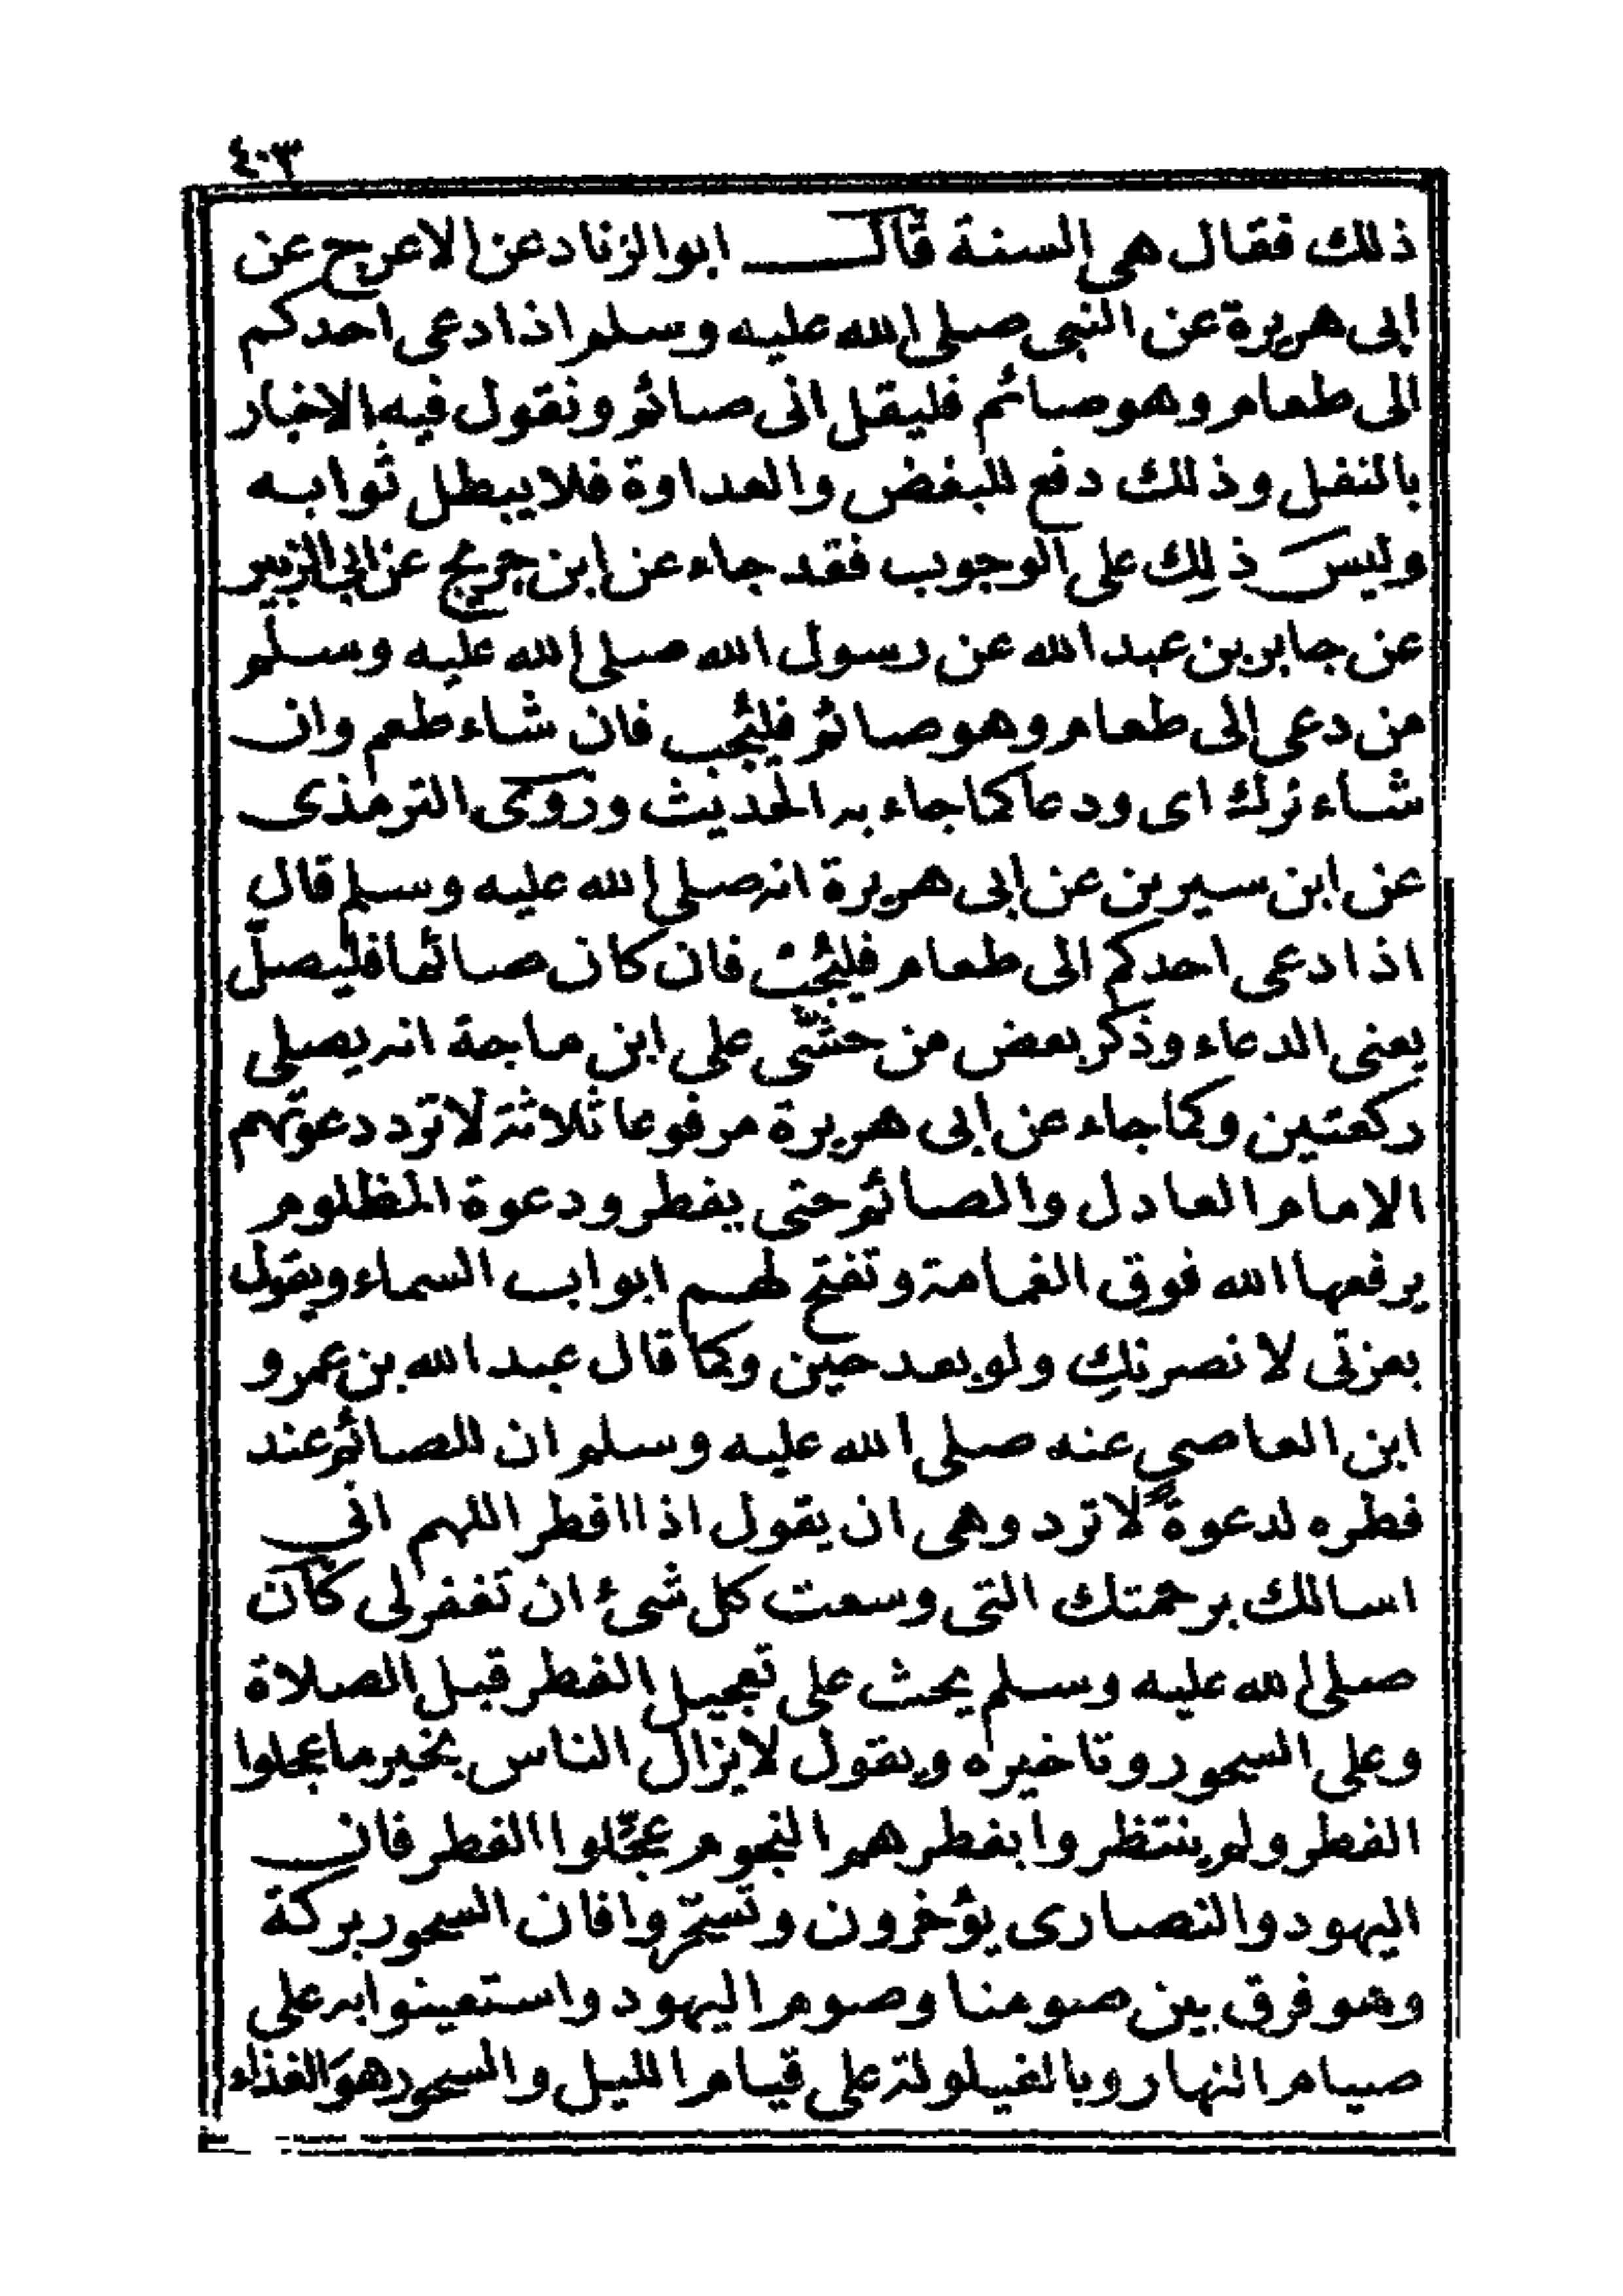 ٤٠٣
ذلك فقال هى السنة قال ابوالزناد عن الاعرج عن
ابى هريرة عن النبى صلى الله عليه وسلم اذا دعى احدكم
الى طعام وهو صائم فليقل انى صائم ونقول فيه الاخبار
بالنفل وذلك دفع للبغض والعداوة فلا يبطل ثوابه
وليس ذلك على الوجوب فقد جاء عن ابن جريج عن ابى الزبير
عن جابر بن عبد الله عن رسول الله صلى الله عليه وسلم
من دعى الى طعام وهو صائم فليُجب فان شاء طعم وان
شاء ترك اى ودعا كما جاء به الحديث وروى الترمذى
عن ابن سيرين عن ابى هريرة انه صلى الله عليه وسلم قال
اذا دعى احدكم الى طعام فليُجب فان كان صائما فليصلّ
يعنى الدعاء وذكر بعض من حشّى على ابن ماجة انه يصلى
ركعتين وكما جاء عن ابى هريرة مرفوعا ثلاثة لا ترد دعوتهم
الامام العادل والصائم حتى يفطر ودعوة المظلوم
يرفعها الله فوق الغمامة وتفتح لهم ابواب السماء ويقول
بعزتى لا نصرنكِ ولو بعد حين وكما قال عبد الله بن عمرو
ابن العاصي عنه صلى الله عليه وسلم ان للصائم عند
فطره لدعوةً لا ترد وهى ان يقول اذا افطر اللهم انى
اسالك برحمتك التى وسعت كل شئ ان تغفر لى كان
صلى الله عليه وسلم يحث على تعجيل الفطر قبل الصلاة
وعلى السحور وتاخيره ويقول لا يزال الناس بخير ما عجلوا
الفطر ولم ينتظروا بفطرهم النجوم عجّلوا الفطر فان
اليهود والنصارى يؤخرون وتسحّروا فان السحور بركة
وهو فرق بين صومنا وصوم اليهود واستعينوا به على
صيام النهار وبالقيلولة على قيام الليل والسحور هوَ الغذاء